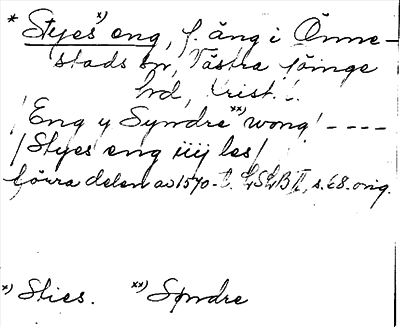 * Styes x) eng, f. äng i Önne-
stads sn, Västra Göinge
hrd, Krist. l.
! Eng y Syndre xx) wong! ----
/ Styes eng iiij les /
förra delen av 1570-t. LSLB II, s. 68. orig.
x) Sties. xx) Spndre